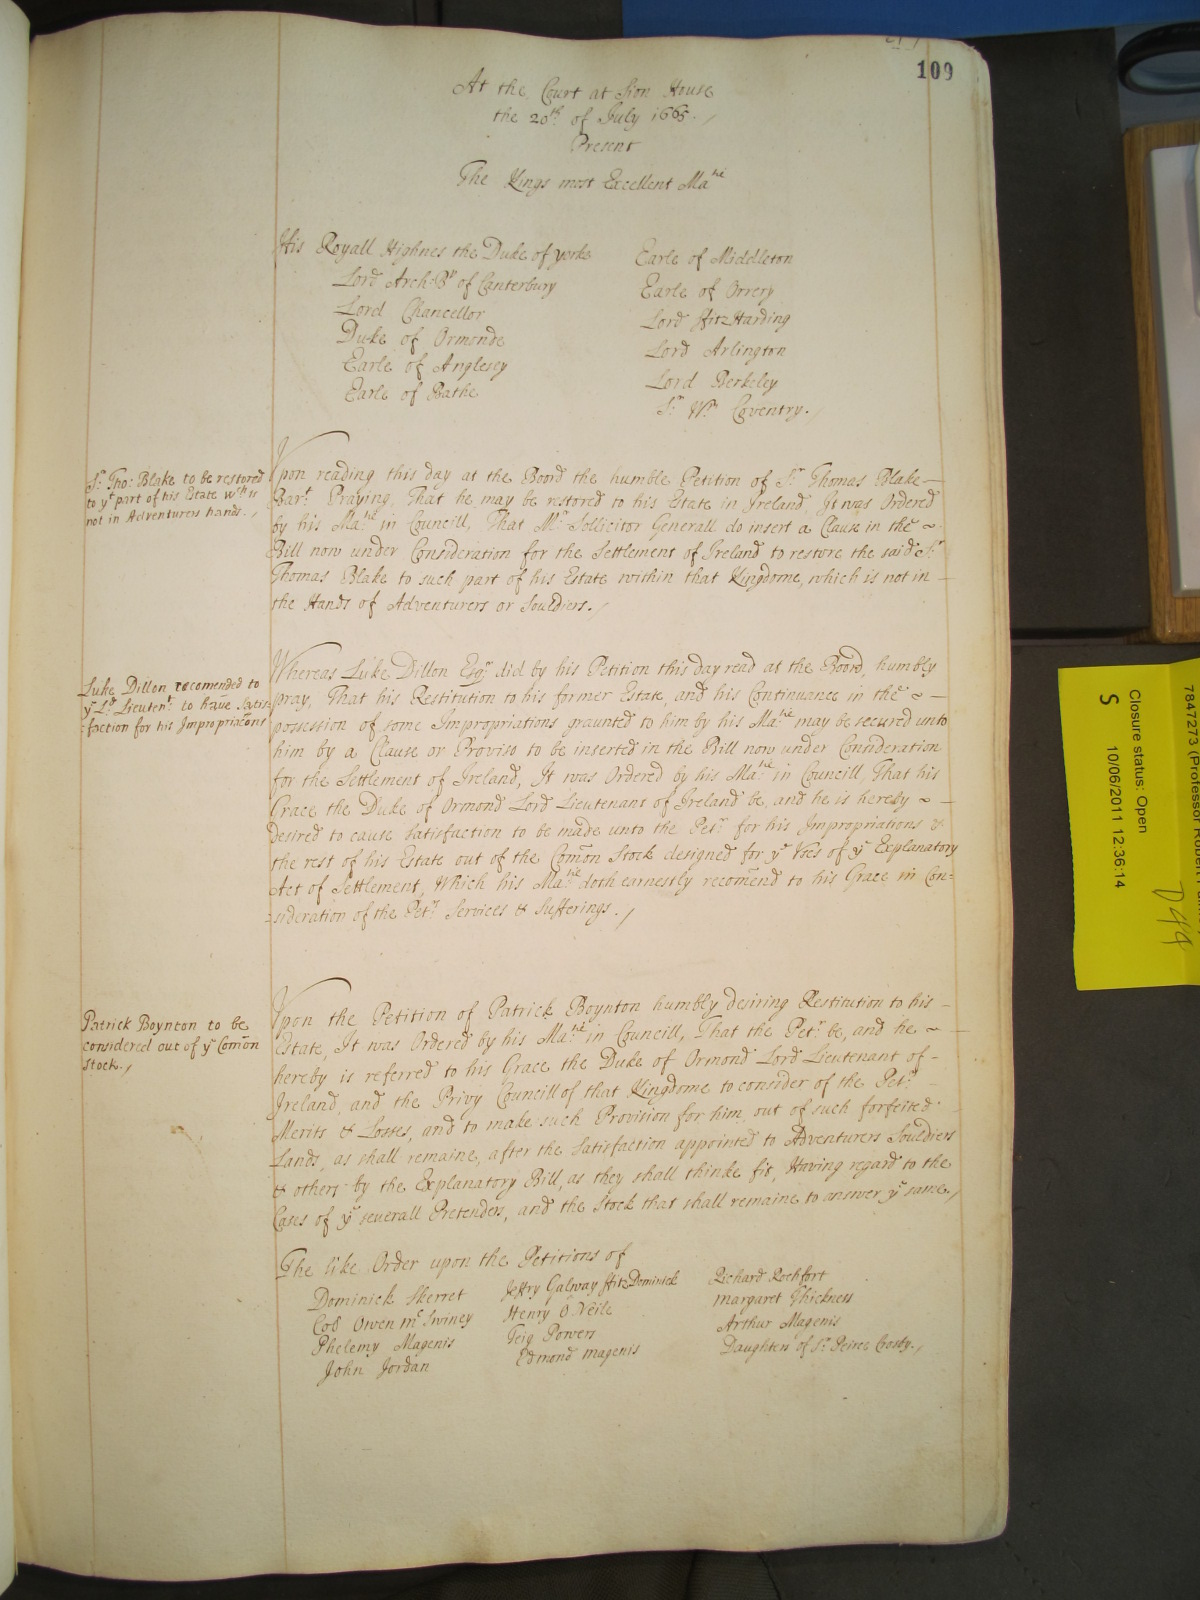 109
At the Court at Sion House
the 20th. of July 1665.
Present
The Kings most Excellent Matie
His Royall Highnes the Duke of yorke
Lord Arch:Bp of Canterbury
Lord Chancellor
Duke of Ormonde
Earle of Anglesey
Earle of Bathe
Earle of Middleton
Earle of Orrery
Lord FitzHarding
Lord Arlington
Lord Berkeley
Sr. Wm. Coventry.
Sr. Tho: Blake to be restored
to ye part of his Estate wch. is
not in Adventurers hands.
Vpon reading this day at the Boord the humble Petition of Sr. Thomas Blake
Bart. Praying, That he may be restored to his Estate in Ireland, It was Ordered
by his Matie. in Councill, That Mr. Sollicitor Generall do insert a Clause in the
Bill now under Consideration for the Settlement of Ireland to restore the said Sr.
Thomas Blake to such part of his Estate within that Kingdome, which is not in
the Hands of Adventurers or Souldiers.
Luke Dillon recomended to
ye Ld. Lieutent. to have Satis
faction for his Impropriacõns
Whereas Luke Dillon Esqr. did by his Petition this day read at the Boord, humbly
pray, That his Restitution to his former Estate, and his Continuance in the
possession of some Impropriations graunted to him by his Matie. may be secured unto
him by a Clause or Proviso to be inserted in the Bill now under Consideration
for the Settlement of Ireland, It was Ordered by his Matie. in Councill, That his
Grace the Duke of Ormond Lord Lieutenant of Ireland be, and he is hereby
desired to cause Satisfaction to be made unto the Petr. for his Impropriations &
the rest of his Estate out of the Com̃on Stock designed for ye Vses of ye Explanatory
Act of Settlement, Which his Matie. doth earnestly recom̃end to his Grace in Con=
=sideration of the Petrs. Services & Sufferings.
Patrick Boynton to be
considered out of ye Com̃on
Stock.
Vpon the Petition of Patrick Boynton humbly desiring Restitution to his
Estate, It was Ordered by his Matie. in Councill, That the Petr. be, and he
hereby is referred to his Grace the Duke of Ormond Lord Lieutenant of
Ireland, and the Privy Councill of that Kingdome to consider of the Petrs.
Merits & Losses, and to make such Provision for him, out of such forfeited
Lands, as shall remaine, after the Satisfaction appointed to Adventurers Souldiers
& others by the Explanatory Bill, as they shall thinke fit, Having regard to the
Cases of ye severall Pretenders, and the Stock that shall remaine to answer ye same,
The like Order upon the Petitions of
Dominick Skerret
Col Owen mc. Swiney
Phelemy Magenis
John Jordan
Jeffry Galway FitzDominick
Henry O Neile
Teig Powers
Edmond magenis
Richard Rochfort
Margaret Thickness
Arthur Magenis
Daughters of Sr. Peirce Crosby.
7847273 (Professor
Closure status: Open
10/06/2011 12:36:14
S